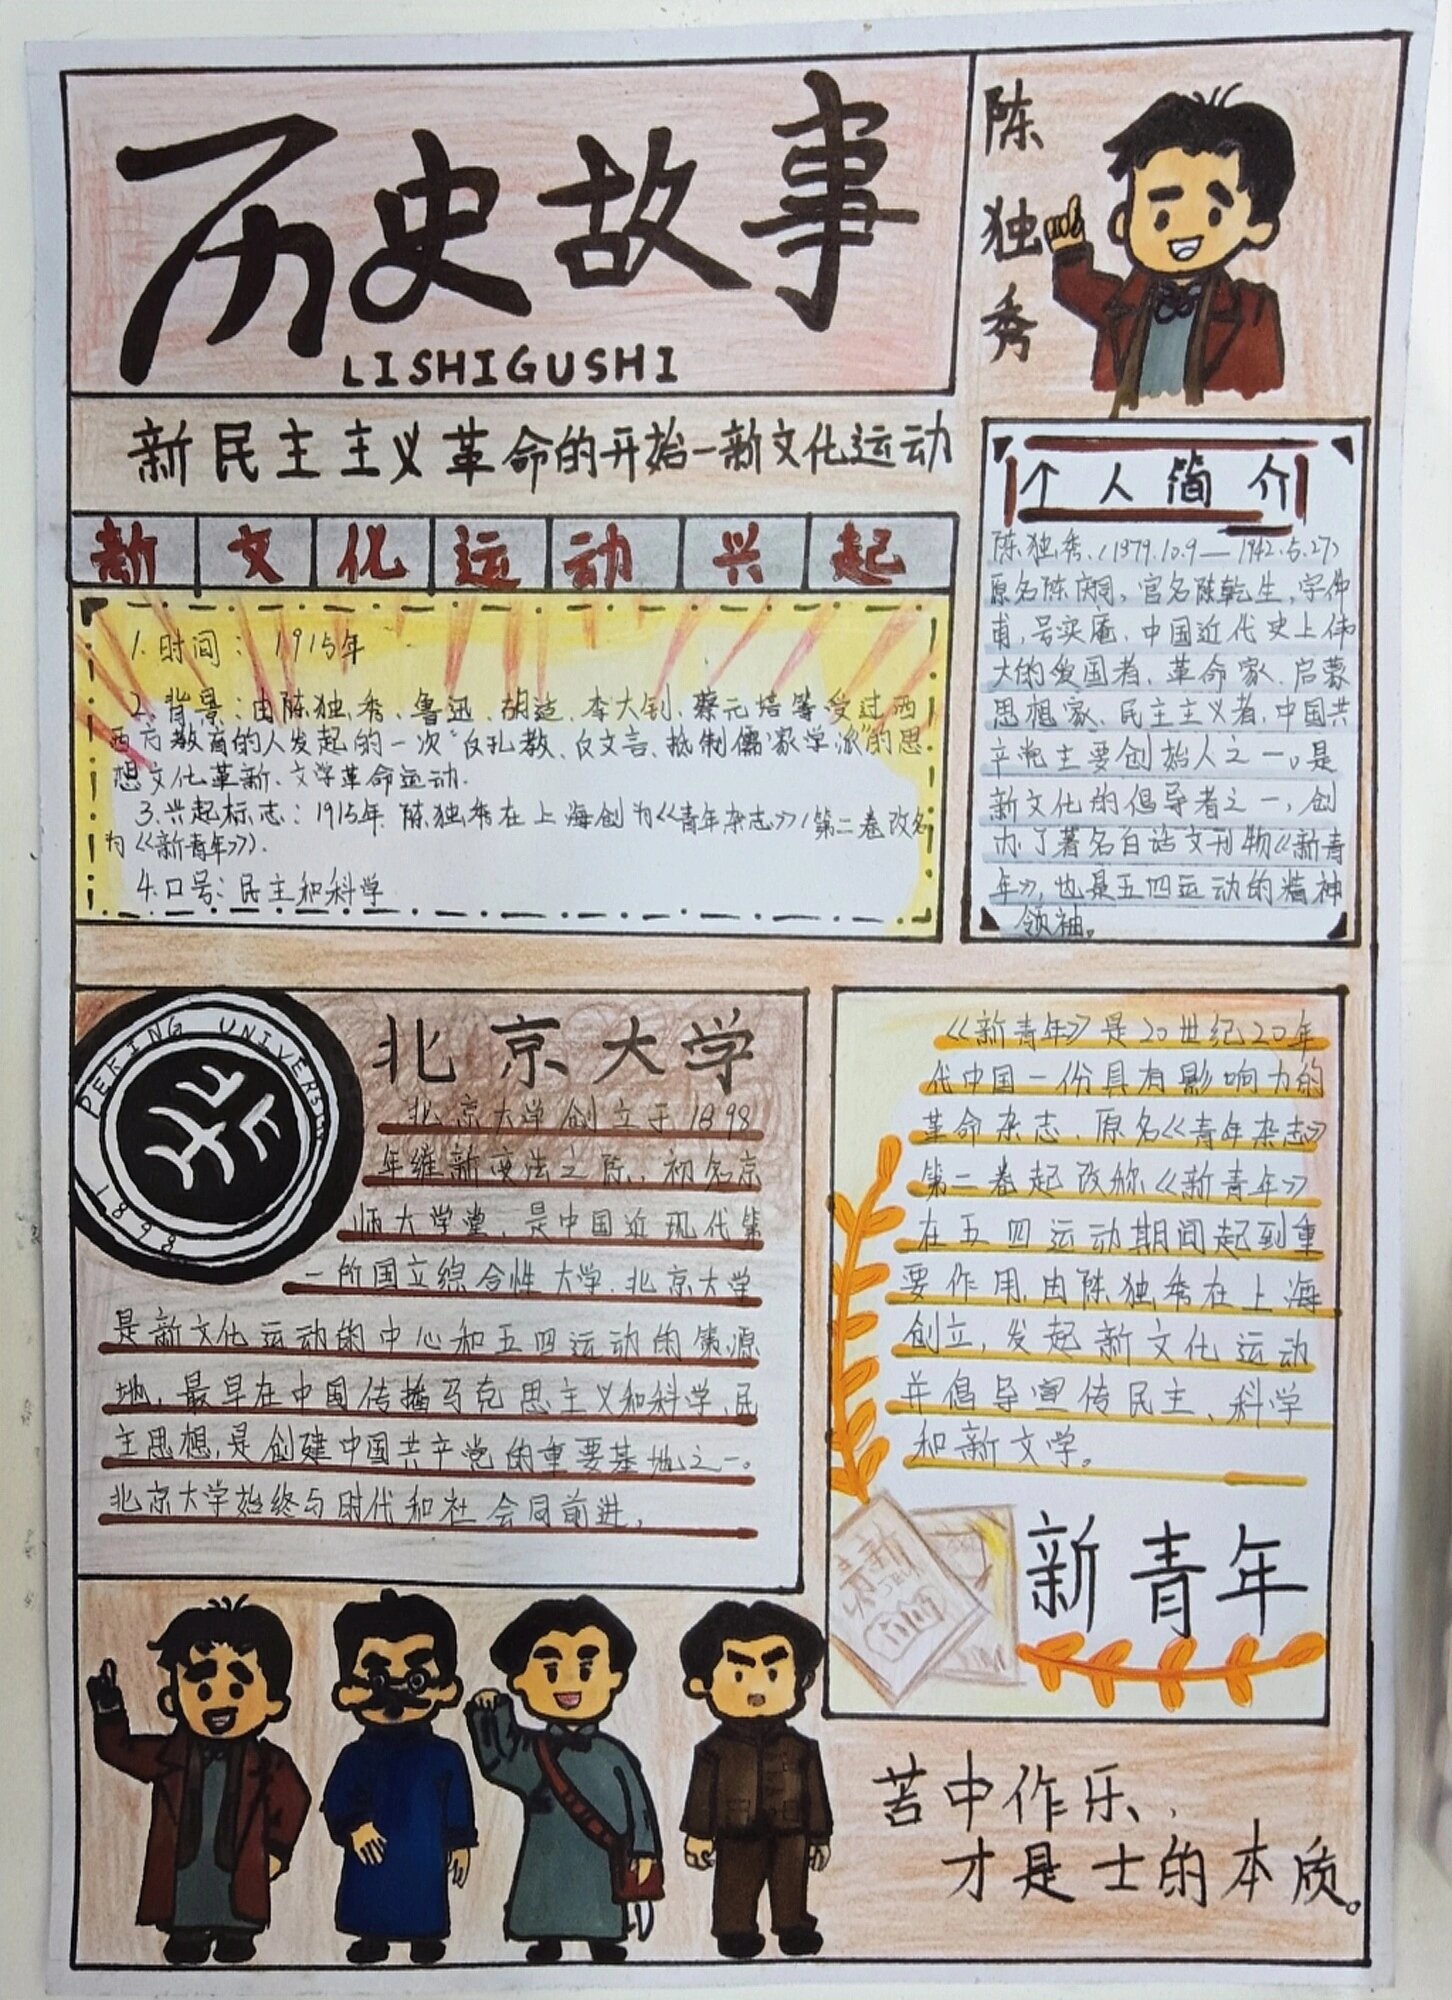 历史故事
LISHIGUSHI
陈独秀
新民主主义革命的开始-新文化运动
新文化运动兴起
1.时间:1915年
2.背景:由陈独秀、鲁迅、胡适、李大钊、蔡元培等受过西
西方教育的人发起的一次“反孔教、反文言、抵制儒家学派”的思
想文化革新、文学革命运动.
3.兴起标志:1915年 陈独秀在上海创为《青年杂志》(第二卷改名
为《新青年》).
4.口号:民主和科学
个人简介
陈独秀.(1879.10.9—1942.5.27)
原名陈庆同,官名陈乾生,字仲
甫,号实庵,中国近代史上伟
大的爱国者、革命家、启蒙
思想家、民主主义者,中国共
产党主要创始人之一。是
新文化的倡导者之一,创
办了著名白话文刊物《新青
年》,也是五四运动的精神
领袖。
PEKING UNIVERSITY
1898
北京大学
北京大学创立于1898
年维新变法之际,初名京
师大学堂,是中国近现代第
一所国立综合性大学.北京大学
是新文化运动的中心和五四运动的策源
地,最早在中国传播马克思主义和科学、民
主思想,是创建中国共产党的重要基地之一。
北京大学始终与时代和社会同前进,
《新青年》是20世纪20年
代中国一份具有影响力的
革命杂志、原名《青年杂志》
第二卷起改称《新青年》
在五四运动期间起到重
要作用.由陈独秀在上海
创立,发起新文化运动
并倡导宣传民主、科学
和新文学。
新青年
苦中作乐,
才是士的本质。